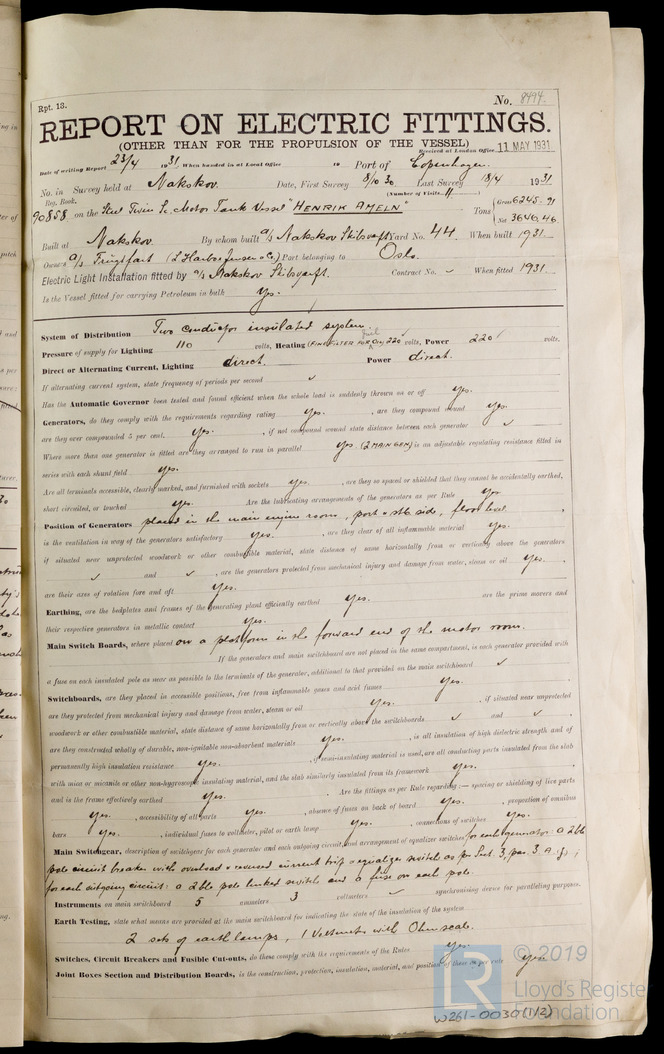 Rpt. 13.
No. 8494.
REPORT ON ELECTRIC FITTINGS.
(OTHER THAN FOR THE PROPULSION OF THE VESSEL)
Received at London Office 11 MAY 1931
Date of writing Report 23/4 1931. When handed in at Local Office 19 Port of Copenhagen.
No. in Survey held at Nakskov. Date, First Survey 8/10 30. Last Survey 18/4 1931
Reg. Book. (Number of Visits 11)
90858 on the Steel Twin Sc. Motor Tank Vessel "HENRIK AMELN" Tons { Gross 6245.91
Net 3646.46
Built at Nakskov. By whom built A/S Nakskov Skibsværft Yard No. 44. When built 1931.
Owners A/S Port belonging to Oslo.
Electric Light Installation fitted by A/S Nakskov Skibsværft. Contract No. ✓ When fitted 1931.
Is the Vessel fitted for carrying Petroleum in bulk Yes.
System of Distribution Two conductor insulated system
Pressure of supply for Lighting 110 volts, Heating (FINE FILTER FOR FUEL OIL) 220 volts, Power 220 volts.
Direct or Alternating Current, Lighting direct. Power direct.
If alternating current system, state frequency of periods per second ✓
Has the Automatic Governor been tested and found efficient when the whole load is suddenly thrown on or off Yes.
Generators, do they comply with the requirements regarding rating Yes. , are they compound wound Yes.
are they over compounded 5 per cent. Yes. , if not compound wound state distance between each generator ✓
Where more than one generator is fitted are they arranged to run in parallel Yes. (2 MAIN GEN) is an adjustable regulating resistance fitted in
series with each shunt field Yes.
Are all terminals accessible, clearly marked, and furnished with sockets Yes. , are they so spaced or shielded that they cannot be accidentally earthed,
short circuited, or touched Yes. Are the lubricating arrangements of the generators as per Rule Yes.
Position of Generators placed in the main engine room, port & stb. side, floor level.
is the ventilation in way of the generators satisfactory Yes. , are they clear of all inflammable material Yes.
if situated near unprotected woodwork or other combustible material, state distance of same horizontally from or vertically above the generators
✓ and ✓ , are the generators protected from mechanical injury and damage from water, steam or oil Yes.
are their axes of rotation fore and aft Yes.
Earthing, are the bedplates and frames of the generating plant efficiently earthed Yes. are the prime movers and
their respective generators in metallic contact Yes.
Main Switch Boards, where placed on a platform in the forward end of the motor room.
If the generators and main switchboard are not placed in the same compartment, is each generator provided with
a fuse on each insulated pole as near as possible to the terminals of the generator, additional to that provided on the main switchboard ✓
Switchboards, are they placed in accessible positions, free from inflammable gases and acid fumes Yes.
are they protected from mechanical injury and damage from water, steam or oil Yes. , if situated near unprotected
woodwork or other combustible material, state distance of same horizontally from or vertically above the switchboards ✓ and ✓
are they constructed wholly of durable, non-ignitable non-absorbent materials Yes. , is all insulation of high dielectric strength and of
permanently high insulation resistance Yes. , if semi-insulating material is used, are all conducting parts insulated from the slab
with mica or micanite or other non-hygroscopic insulating material, and the slab similarly insulated from its framework Yes.
and is the frame effectively earthed Yes. Are the fittings as per Rule regarding:— spacing or shielding of live parts
Yes. , accessibility of all parts Yes. , absence of fuses on back of board Yes. , proportion of omnibus
bars Yes. , individual fuses to voltmeter, pilot or earth lamp Yes. , connections of switches Yes.
Main Switchgear, description of switchgear for each generator and each outgoing circuit and arrangement of equalizer switches for each generator: a 2ble
pole circuit breaker with overload & reversed current trip & equalizer switch as pr. Sect. 3, par. 3 A. g.;
for each outgoing circuit: a 2ble pole linked switch and a fuse on each pole.
Instruments on main switchboard 5 ammeters 3 voltmeters ✓ synchronising device for paralleling purposes.
Earth Testing, state what means are provided at the main switchboard for indicating the state of the insulation of the system
2 sets of earth lamps, 1 Voltmeter with Ohm scale.
Switches, Circuit Breakers and Fusible Cut-outs, do these comply with the requirements of the Rules Yes.
Joint Boxes Section and Distribution Boards, is the construction, protection, insulation, material, and position of these as per rule Yes.
LR
© 2019
Lloyd's Register
Foundation
W261-0030(1/2)